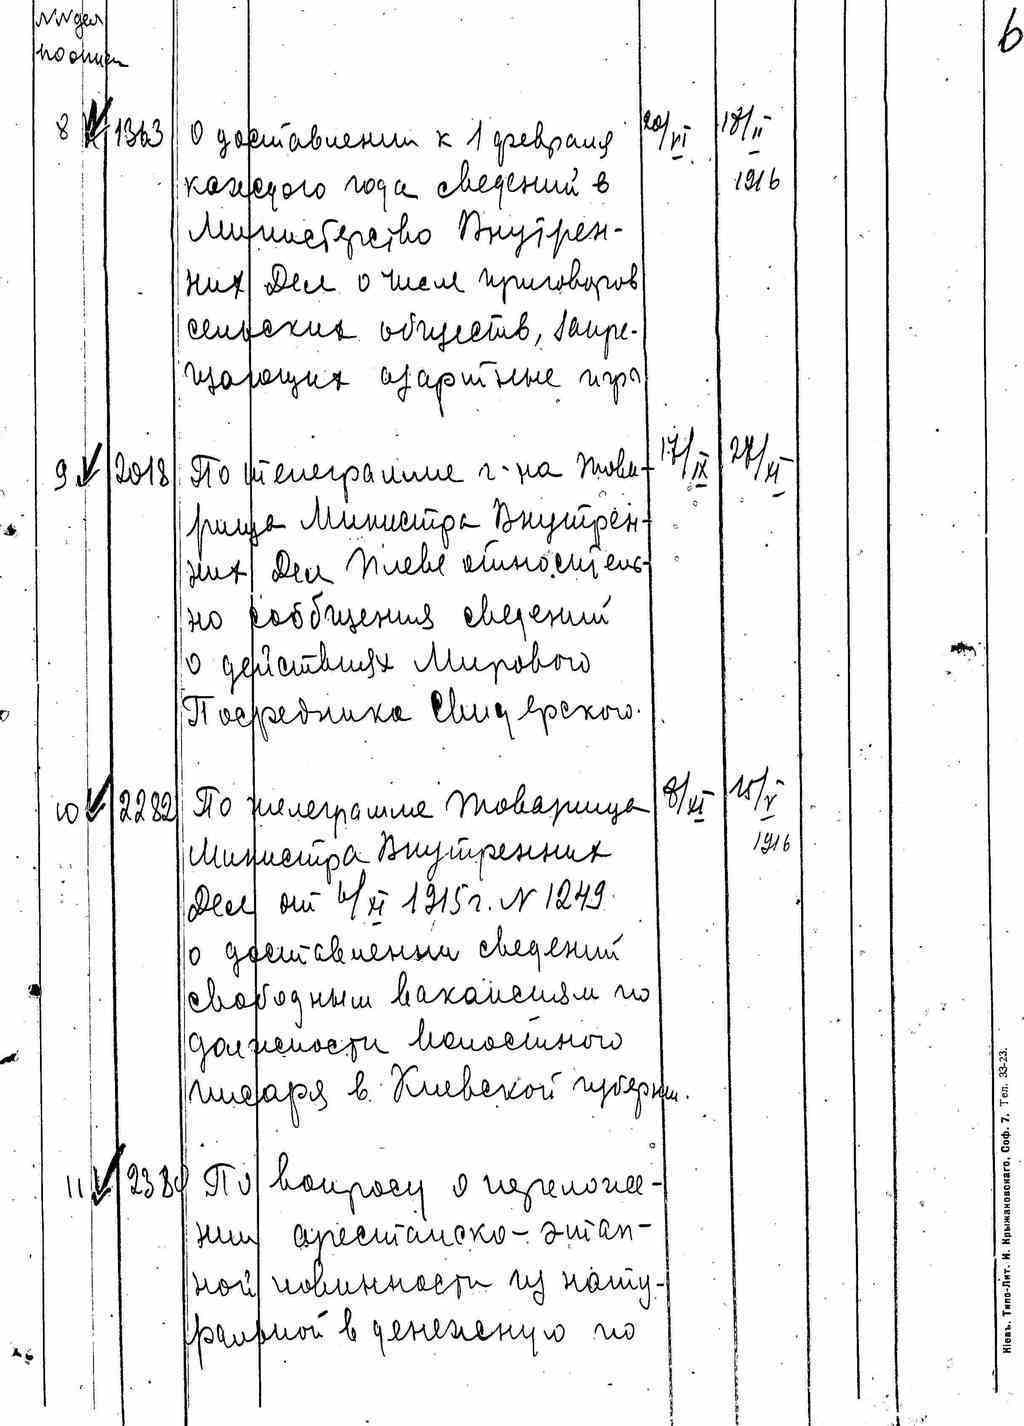 NN дел
по описи
6
8 1363 О доставлении к 1 февраля 20/VI 18/II
каждого года сведений в 1916
Министерство Внутрен-
них Дел о числе приговоров
сельских обществ, запре-
щающих азартные игры
9 2018 По телеграмме г-на Това- 17/IX 27/XI
рища Министра Внутрен-
них Дел Плеве относитель-
но сообщения сведений
о действиях Мирового
Посредника Свидерского.
10 2282 По телеграмме Товарища 8/XI 15/V
Министра Внутренних 1916
Дел от 6/XI 1915 г. N 1249
о доставлении сведений
свободным вакансиям по
должности волостного
писаря в Киевской губернии.
11 238 По вопросу о переложе-
нии арестанско-этап-
ной повинности из нату-
ральной в денежную по
Кіевъ. Типо-Лит. И. Крыжановскаго, Соф. 7. Тел. 33-23.